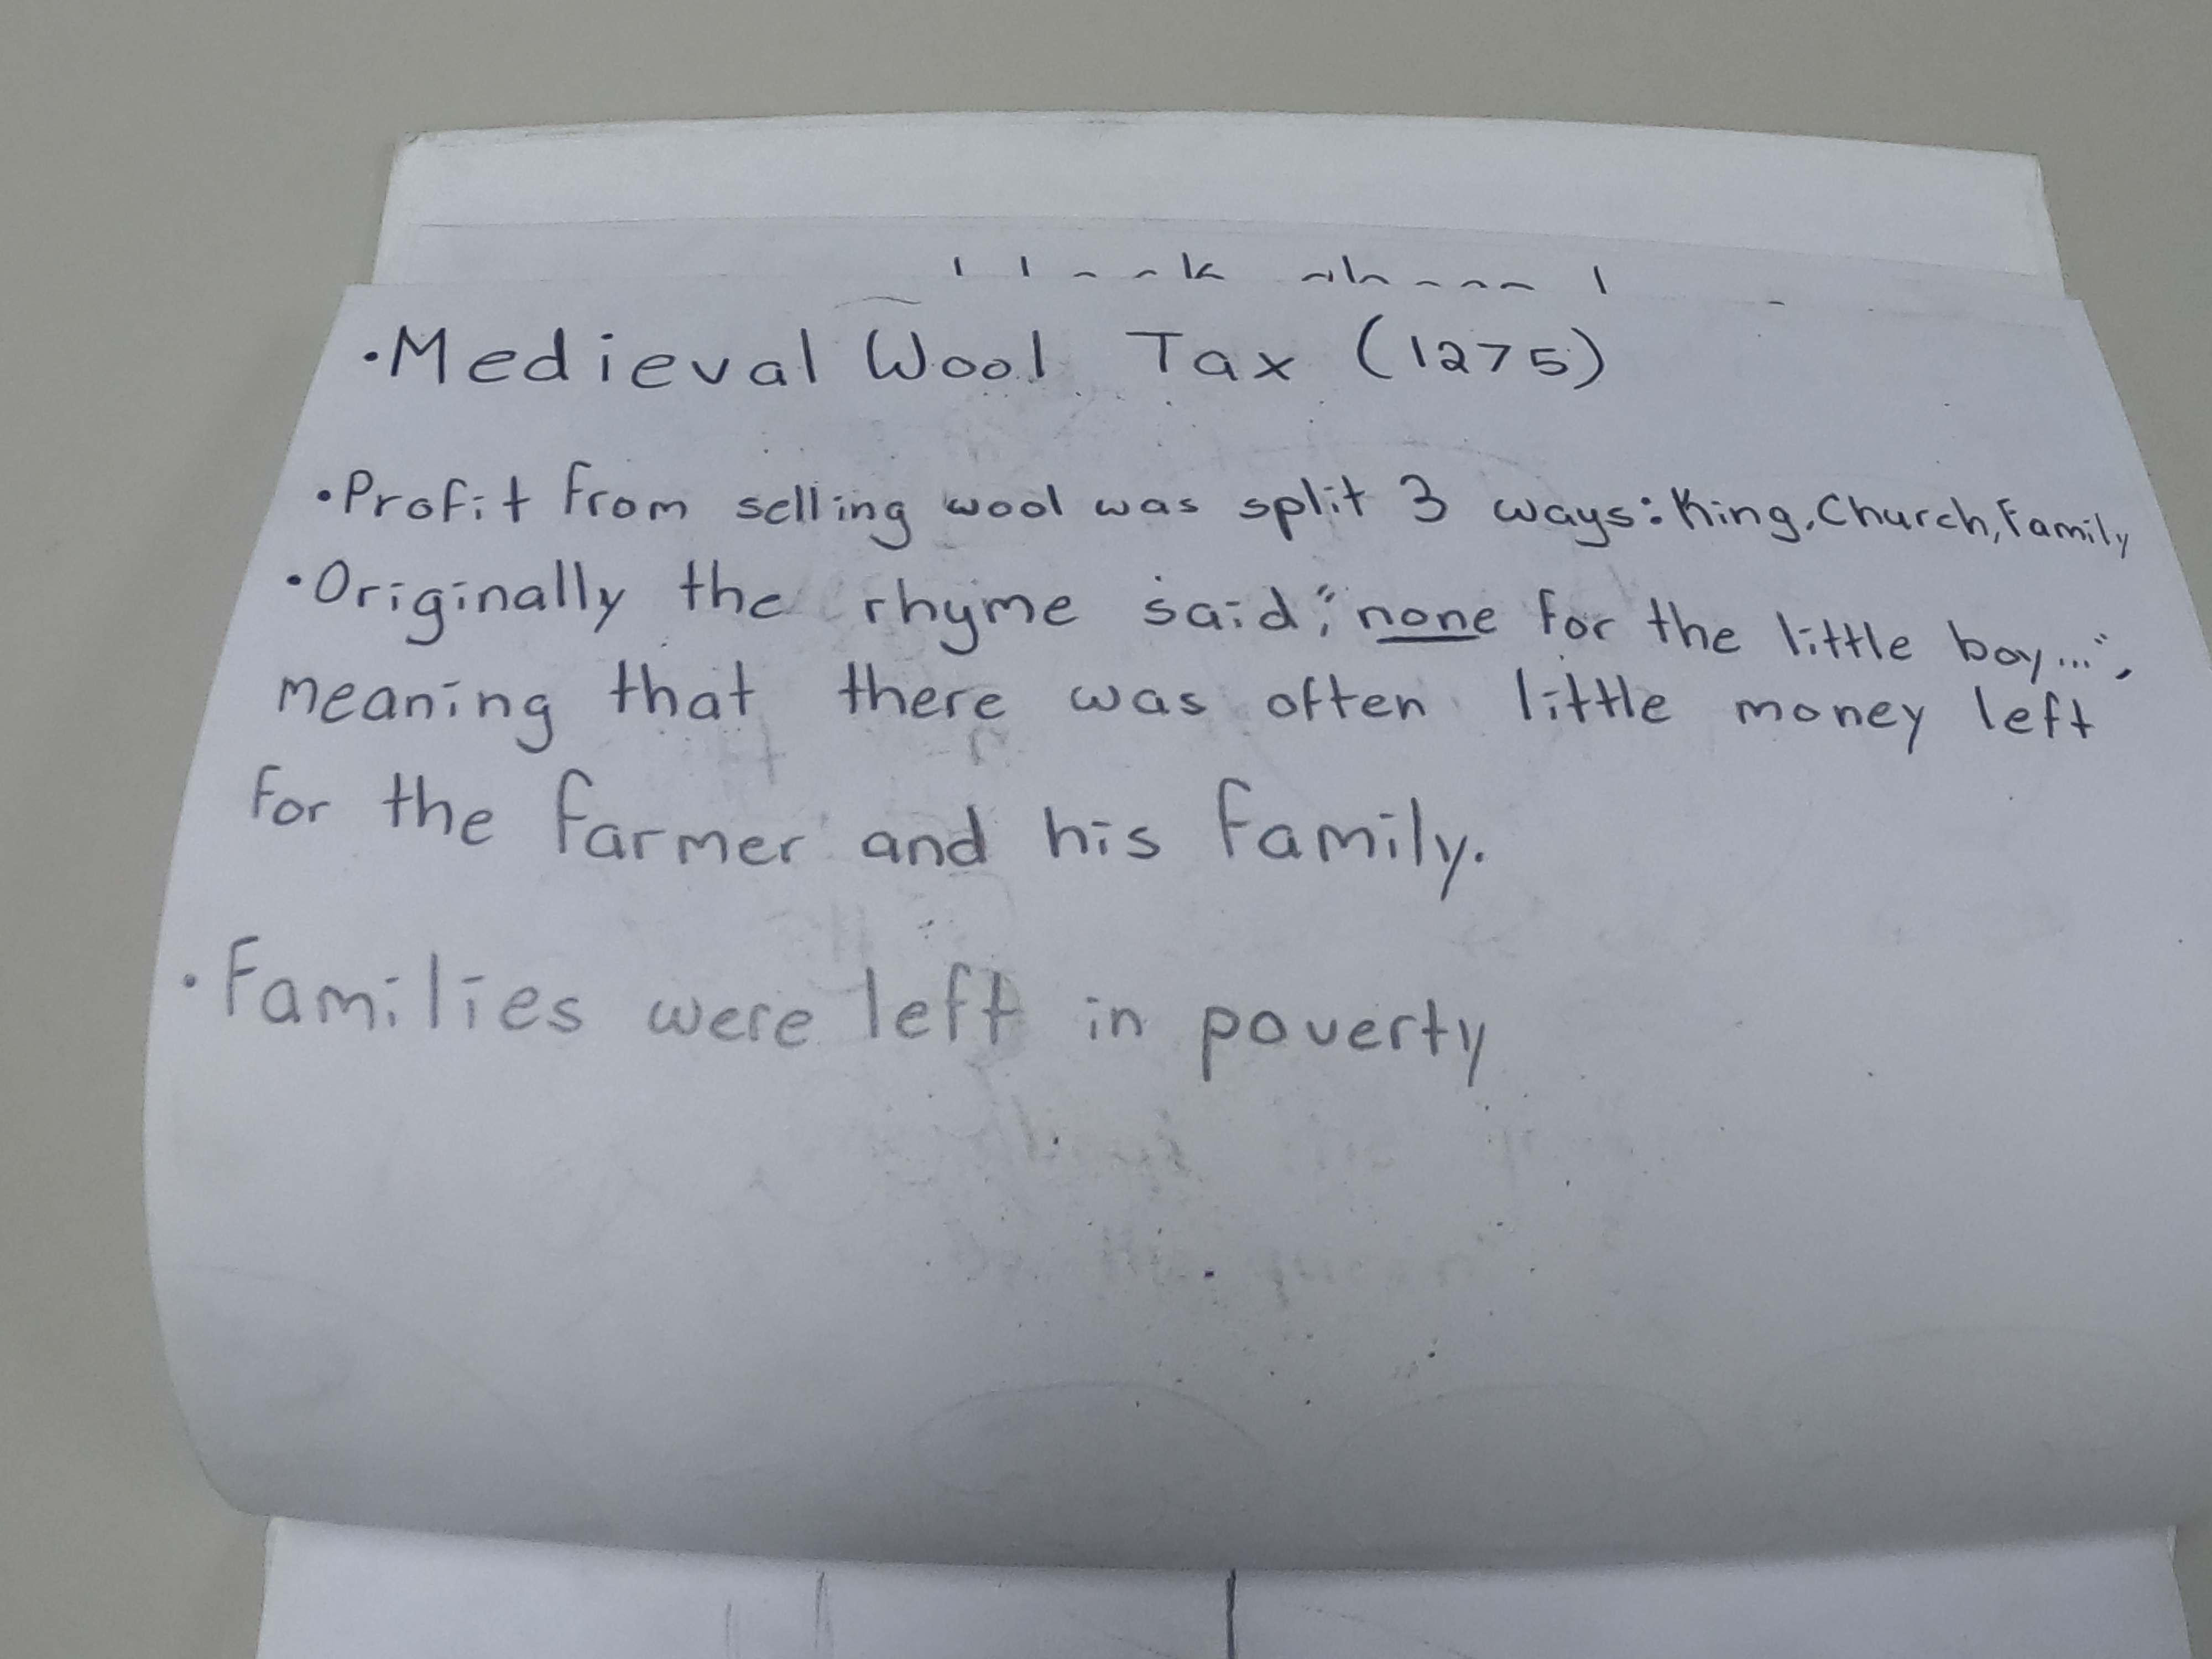 •Medieval Wool Tax (1275)
•Profit from selling wool was split 3 ways: King, Church, Family
•Originally the rhyme said, "none for the little boy...",
meaning that there was often little money left
for the farmer and his family.
•Families were left in poverty